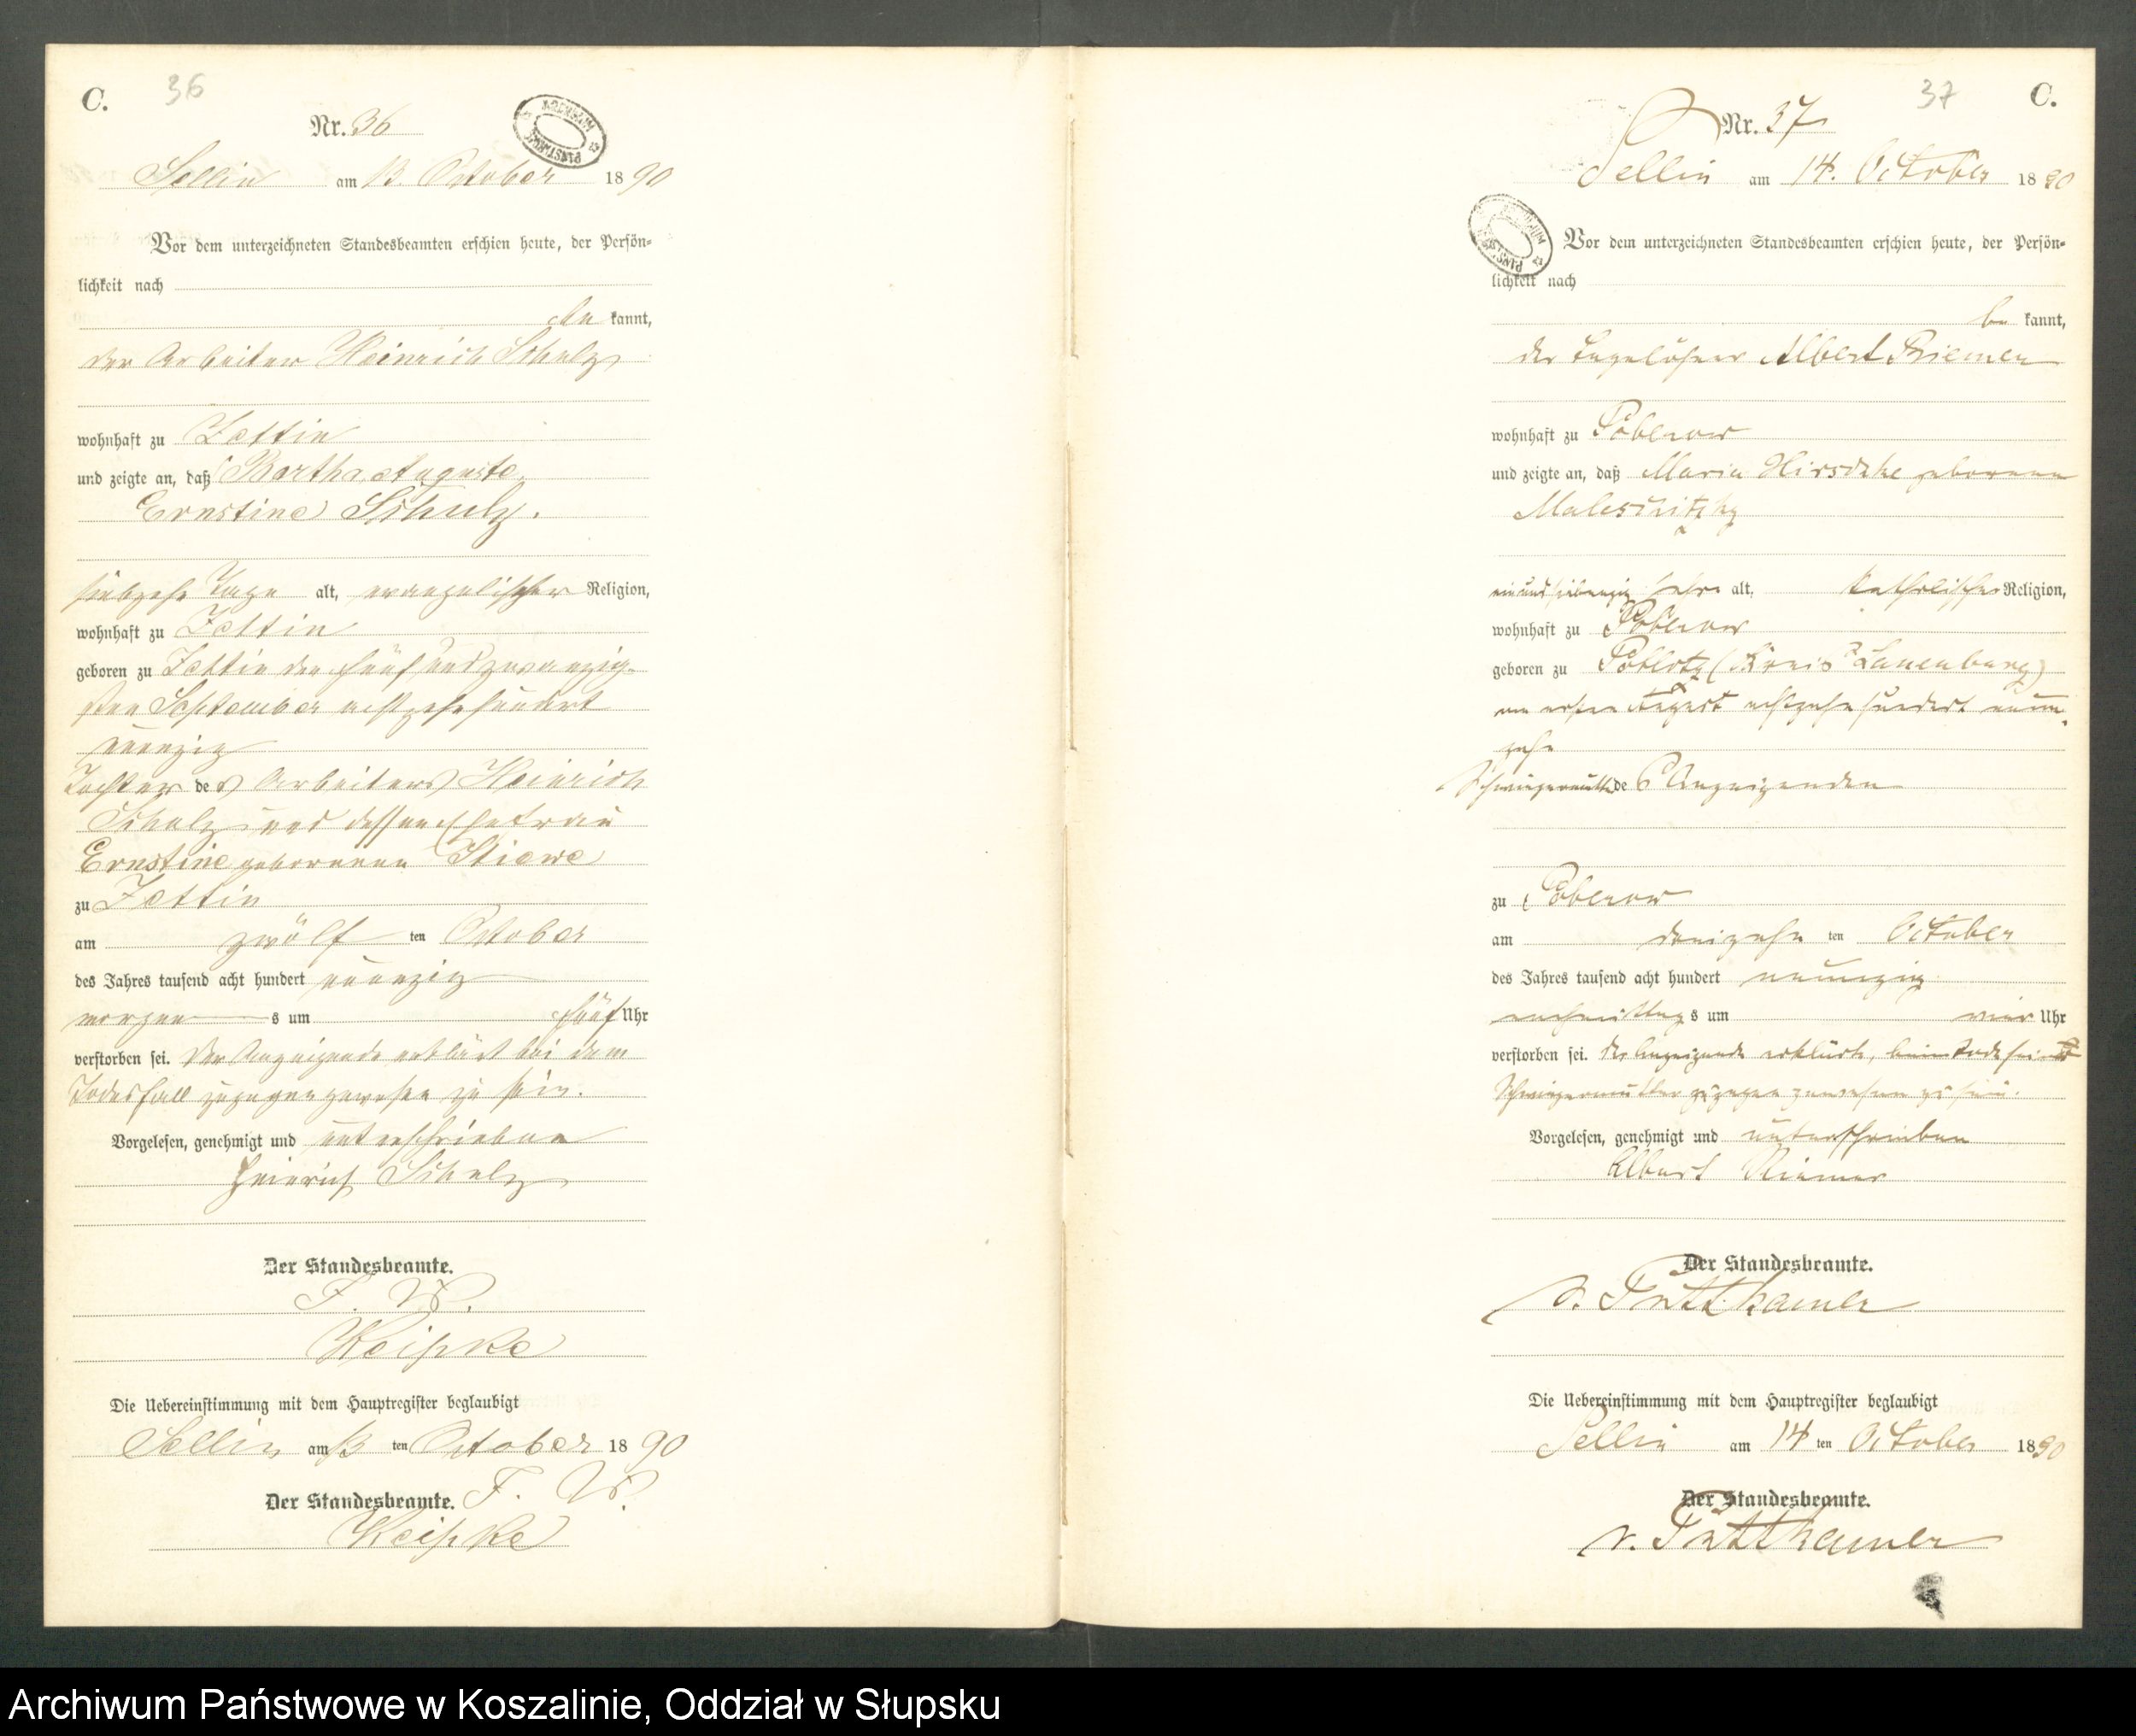 C.
36
Nr. 36
ARCHIWUM PAŃSTWOWE
Sellin am 13. October 1890
Vor dem unterzeichneten Standesbeamten erschien heute, der Persön-
lichkeit nach
kannt,
der Arbeiter Heinrich Schulz
wohnhaft zu Zettin
und zeigte an, daß Bertha Auguste
Ernstine Schulz.
siebzehn Tage alt, evangelischer Religion,
wohnhaft zu Zettin
geboren zu Zettin den fünf und zwanzig-
sten September achtzehnhundert
neunzig
Tochter des Arbeiters Heinrich
Schulz und dessen Ehefrau
Ernstine geborenen Stiewe
zu Zettin
am zwölf ten October
des Jahres tausend acht hundert neunzig
morgens um fünf Uhr
verstorben sei. Der Anzeigende erklärt bei dem
Todesfall zugegen gewesen zu sein.
Vorgelesen, genehmigt und unterschrieben
Heinrich Schulz
Der Standesbeamte.
Die Uebereinstimmung mit dem Hauptregister beglaubigt
Sellin am 13 ten October 1890
Der Standesbeamte.
37
C.
Nr. 37
Sellin am 14. October 1890
ARCHIWUM PAŃSTWOWE
Vor dem unterzeichneten Standesbeamten erschien heute, der Persön-
lichkeit nach
be kannt,
der Tagelöhner Albert Riemer
wohnhaft zu Poblow
und zeigte an, daß Maria Hirschke geborene
ein und siebenzig Jahre alt, katholischer Religion,
wohnhaft zu
geboren zu Poblotz (Kreis Lauenburg)
am ersten August achtzehn hundert neun-
zehn
Schwiegermutter des Anzeigenden
zu
am dreizehn ten October
des Jahres tausend acht hundert neunzig
nachmittags um vier Uhr
verstorben sei. Der Anzeigende erklärte, beim Tode seiner
Schwiegermutter zugegen gewesen zu sein.
Vorgelesen, genehmigt und unterschrieben
Albert Riemer
Der Standesbeamte.
v. Puttkamer
Die Uebereinstimmung mit dem Hauptregister beglaubigt
Sellin am 14 ten October 1890
Der Standesbeamte.
v. Puttkamer
Archiwum Państwowe w Koszalinie, Oddział w Słupsku